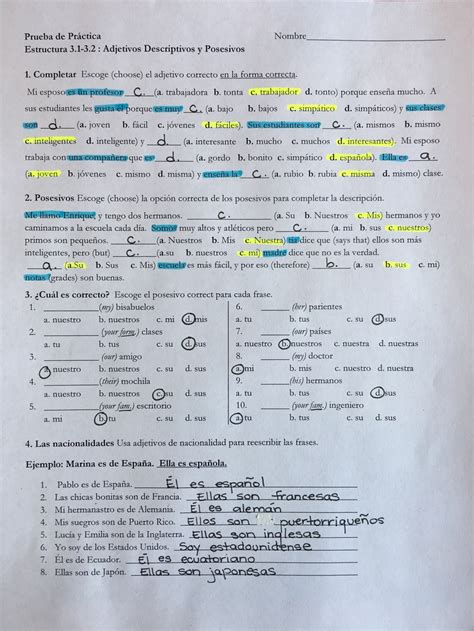 Prueba de Práctica Nombre
Estructura 3.1-3.2 : Adjetivos Descriptivos y Posesivos
1. Completar Escoge (choose) el adjetivo correcto en la forma correcta.
Mi esposo es un profesor C. (a. trabajadora b. tonta c. trabajador d. tonto) porque enseña mucho. A
sus estudiantes les gusta él porque es muy C. (a. bajo b. bajos c. simpático d. simpáticos) y sus clases
son d. (a. joven b. fácil c. jóvenes d. fáciles). Sus estudiantes son C. (a. mismos b. mismo
c. inteligentes d. inteligente) y d. (a. interesante b. mucho c. muchos d. interesantes). Mi esposo
trabaja con una compañera que es d. (a. gordo b. bonito c. simpático d. española). Ella es a.
(a. joven b. jóvenes c. mismo d. misma) y enseña la C. (a. rubio b. rubia c. misma d. mismo) clase.
2. Posesivos Escoge (choose) la opción correcta de los posesivos para completar la descripción.
Me llamo Enrique, y tengo dos hermanos. C. (a. Su b. Nuestros c. Mis) hermanos y yo
caminamos a la escuela cada día. Somos muy altos y atléticos pero C. (a. mi b. sus c. nuestros)
primos son pequeños. C. (a. Nuestros b. Mis c. Nuestra) tía dice que (says that) ellos son más
inteligentes, pero (but) C. (a. su b. nuestros c. mi) madre dice que no es la verdad.
a. (a. Su b. Sus c. Mis) escuela es más fácil, y por eso (therefore) b. (a. su b. sus c. mi)
notas (grades) son buenas.
3. ¿Cuál es correcto? Escoge el posesivo correct para cada frase.
1. (my) bisabuelos 6. (her) parientes
a. nuestro b. nuestros c. mi d. mis a. tu b. tus c. su d. sus
2. (your form.) clases 7. (our) países
a. tu b. tus c. su d. sus a. nuestro b. nuestros c. nuestra d. nuestras
3. (our) amigo 8. (my) doctor
a. nuestro b. nuestros c. su d. sus a. mi b. mis c. nuestro d. nuestra
4. (their) mochila 9. (his) hermanos
a. nuestro b. nuestros c. su d. sus a. tu b. tus c. su d. sus
5. (your fam.) escritorio 10. (your fam.) ingeniero
a. mi b. tu c. su d. sus a. tu b. tus c. su d. sus
4. Las nacionalidades Usa adjetivos de nacionalidad para reescribir las frases.
Ejemplo: Marina es de España. Ella es española.
1. Pablo es de España. Él es español
2. Las chicas bonitas son de Francia. Ellas son francesas
3. Mi hermanastro es de Alemania. Él es alemán
4. Mis suegros son de Puerto Rico. Ellos son puertorriqueños
5. Lucía y Emilia son de la Inglaterra. Ellas son inglesas
6. Yo soy de los Estados Unidos. Soy estadounidense
7. Él es de Ecuador. Él es ecuatoriano
8. Ellas son de Japón. Ellas son japonesas